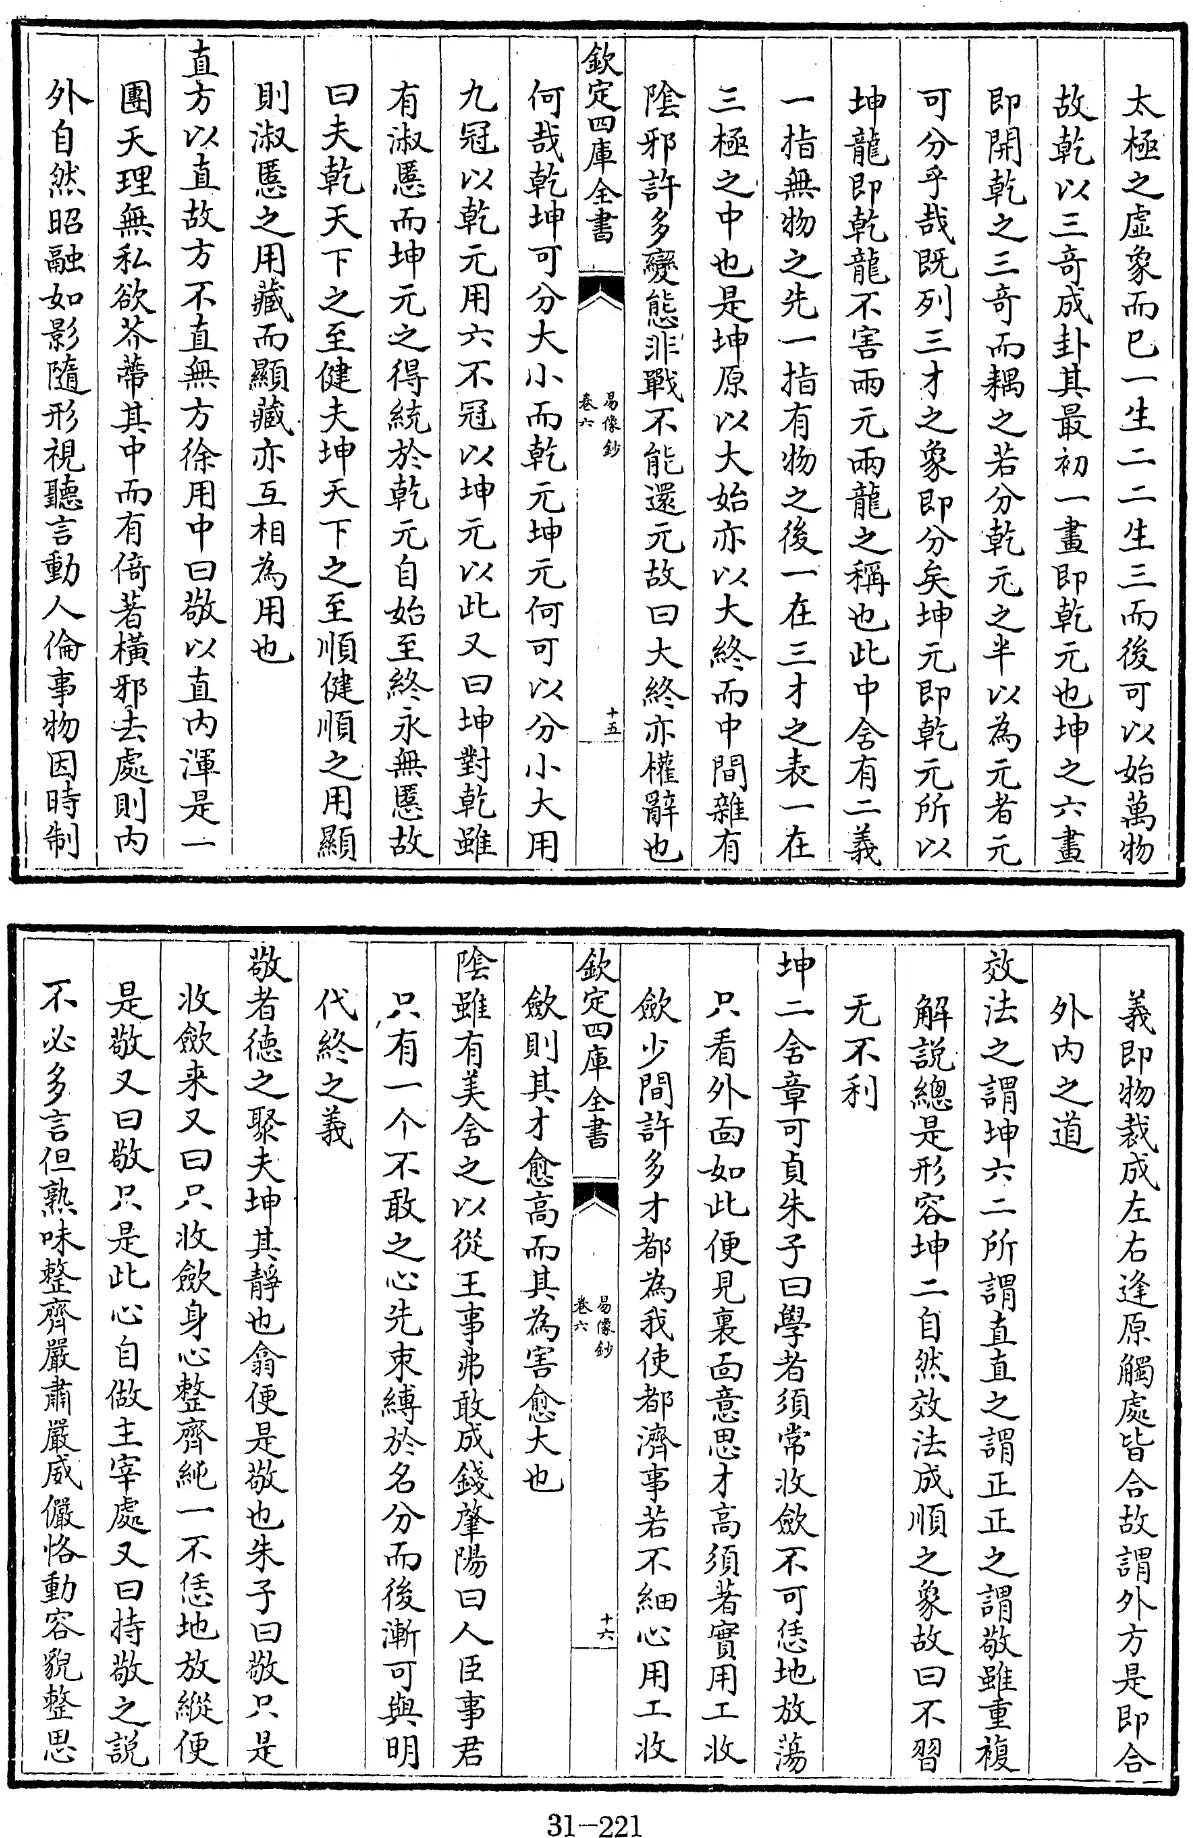 太極之虛象而已一生二二生三而後可以始萬物
故乾以三奇成卦其最初一畫即乾元也坤之六畫
即開乾之三奇而耦之若分乾元之半以為元者元
可分乎哉既列三才之象即分矣坤元即乾元所以
坤龍即乾龍不害兩元兩龍之稱也此中含有二義
一指無物之先一指有物之後一在三才之表一在
三極之中也是坤原以大始亦以大終而中間雜有
陰邪許多變態非戰不能還元故曰大終亦權辭也
欽定四庫全書
易像鈔
卷六
十五
何哉乾坤可分大小而乾元坤元何可以分小大用
九冠以乾元用六不冠以坤元以此又曰坤對乾雖
有淑慝而坤元之得統於乾元自始至終永無慝故
曰夫乾天下之至健夫坤天下之至順健順之用顯
則淑慝之用藏而顯藏亦互相為用也
直方以直故方不直無方徐用中曰敬以直內渾是一
團天理無私欲芥蔕其中而有倚著橫邪去處則內
外自然昭融如影隨形視聽言動人倫事物因時制
義即物裁成左右逢原觸處皆合故謂外方是即合
外內之道
效法之謂坤六二所謂直直之謂正正之謂敬雖重複
解說總是形容坤二自然效法成順之象故曰不習
无不利
坤二含章可貞朱子曰學者須常收斂不可恁地放蕩
只看外面如此便見裏面意思才高須著實用工收
斂少間許多才都為我使都濟事若不細心用工收
欽定四庫全書
易像鈔
卷六
十六
斂則其才愈高而其為害愈大也
陰雖有美含之以從王事弗敢成錢肇陽曰人臣事君
只有一个不敢之心先束縛於名分而後漸可與明
代終之義
敬者德之聚夫坤其靜也翕便是敬也朱子曰敬只是
收斂來又曰只收斂身心整齊純一不恁地放縱便
是敬又曰敬只是此心自做主宰處又曰持敬之說
不必多言但熟味整齊嚴肅嚴威儼恪動容貌整思
31-221